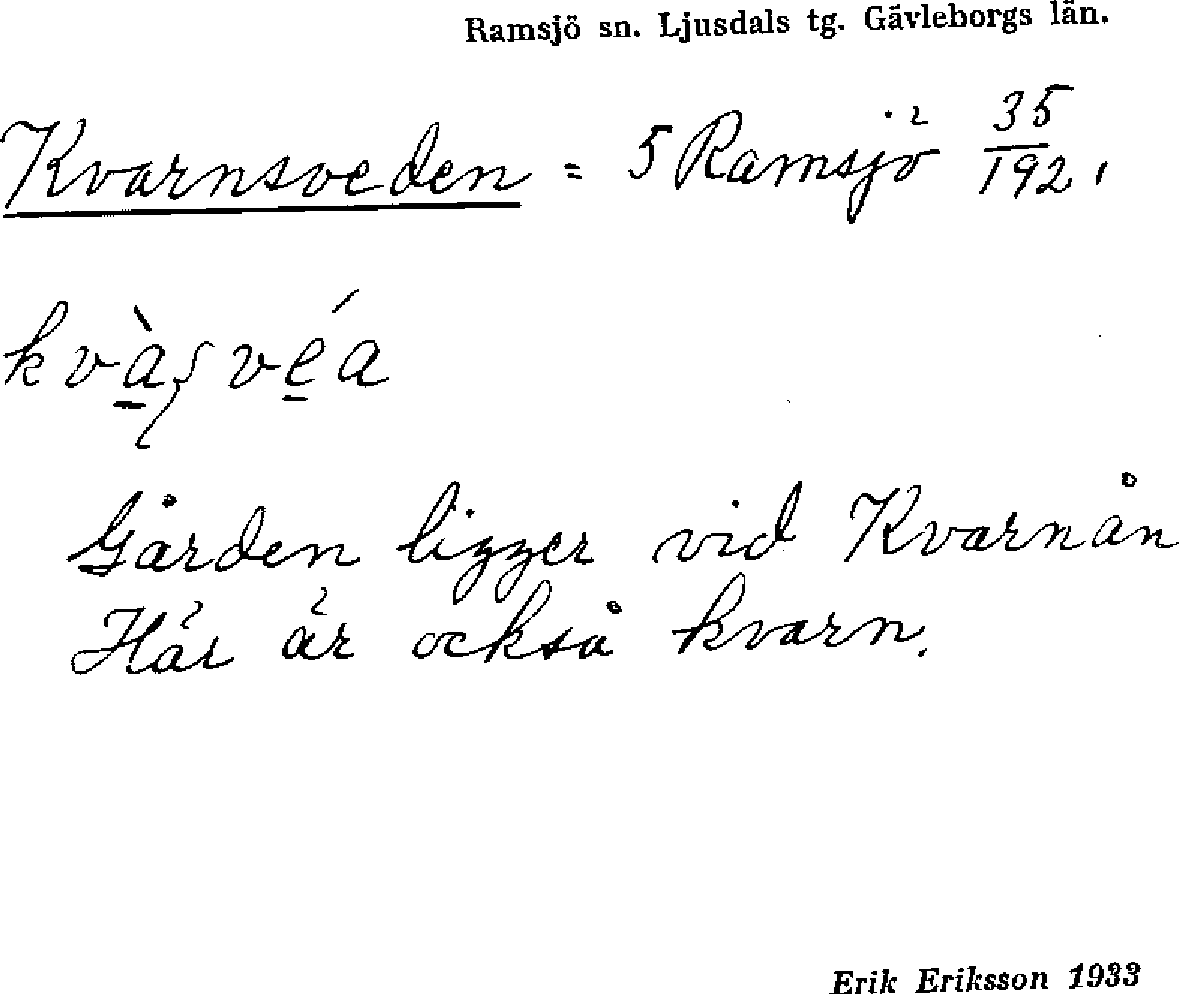 Ramsjö sn. Ljusdals tg. Gävleborgs län.
Kvarnsveden = 5 Ramsjö 35/192.
kvàʂvéa
Gården ligger vid Kvarnån
Här är också kvarn.
Erik Eriksson 1933